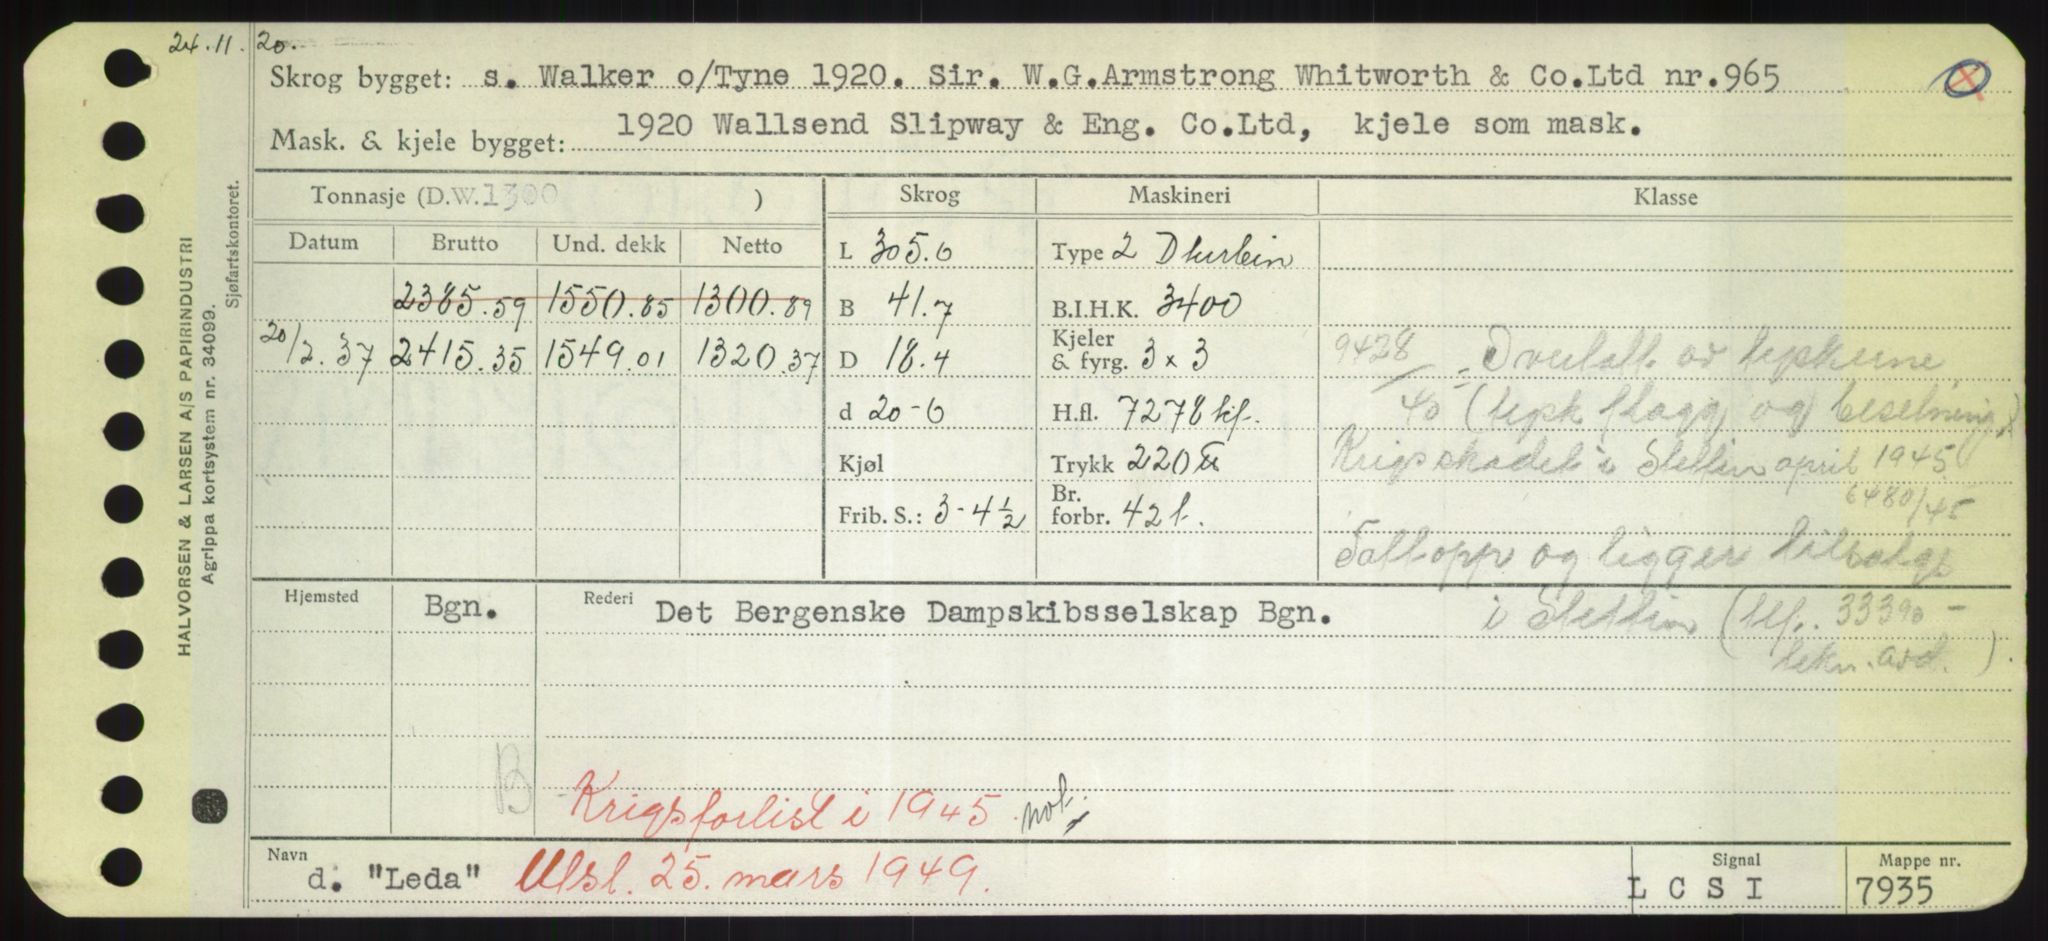 24.11.20.
Skrog bygget: s. Walker o/Tyne 1920. Sir. W.G.Armstrong Whitworth & Co.Ltd nr.965
Mask. & kjele bygget: 1920 Wallsend Slipway & Eng. Co.Ltd, kjele som mask.
HALVORSEN & LARSEN A/S PAPIRINDUSTRI
Agrippa kortsystem nr. 34099.
Sjøfartskontoret.
Tonnasje (D.W. 1300 )
Datum Brutto Und. dekk Netto
2385.59 1550.85 1300.89
20/2.37 2415.35 1549.01 1320.37
Skrog
L 305.0
B 41.7
D 18.4
d 20-0
Kjøl
Frib. S.: 3-4½
Maskineri
Type 2 Dturbin
B.I.H.K. 3400
Kjeler & fyrg. 3 x 3
H.fl. 7278 kf.
Trykk 220 ℔
Br. forbr. 42 t.
Klasse
9428/40 = Overlatt av tyskerne
(tysk flagg og besetning)
Krigsskadet i Stettin april 1945
6480/45
Tatt opp og ligger tilsalgs
i Stettin (tlf. 33390 -
tekn. avd.).
Hjemsted Bgn. Rederi Det Bergenske Dampskibsselskap Bgn.
B
Krigsforlist i 1945. not.
Navn d. "Leda" Utsl. 25. mars 1949.
Signal LCSI
Mappe nr. 7935